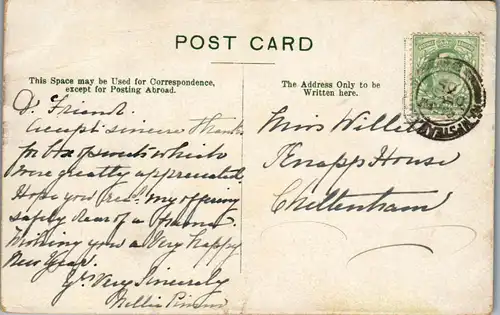 POST CARD
This Space may be Used for Correspondence,
except for Posting Abroad.
The Address Only to be
Written here.
Dr Friend.
Accept sincere thanks
for box of sweets which
were greatly appreciated.
Hope you recd. my offering
safely
Wishing you a Very happy
New Year.
Yrs Very Sincerely
Nellie
Miss Willett
Knapp House
Cheltenham